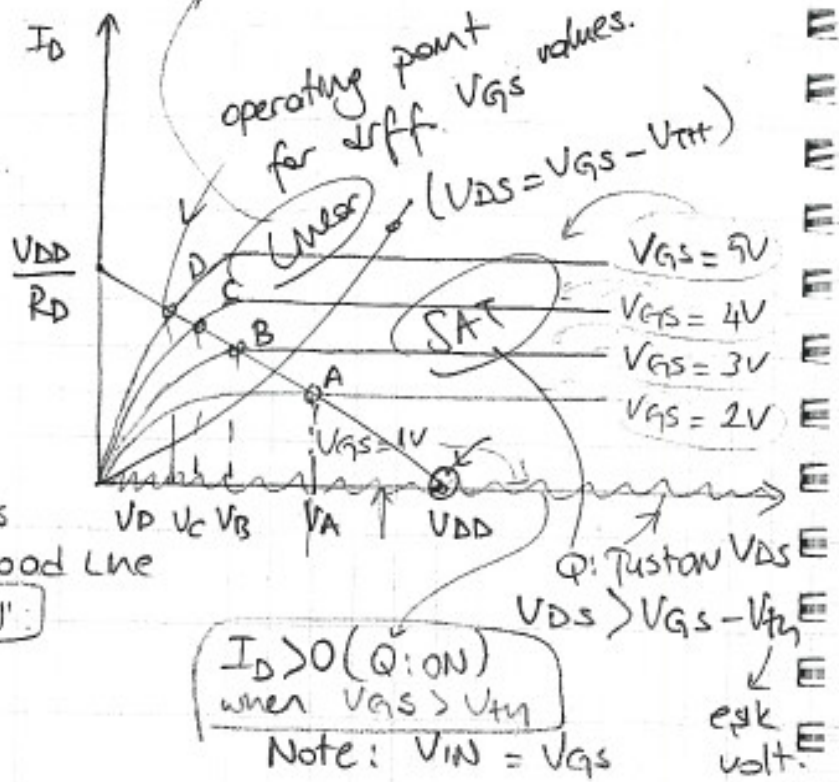 ID
operating point
for diff. VGS values.
(VDS = VGS - VTH)
Linear
SAT
VDD
RD
D
C
B
A
VGS = 5V
VGS = 4V
VGS = 3V
VGS = 2V
VGS = 1V
VD VC VB VA VDD
Q: Just ON VDS
VDS > VGS - Vth
eşik
volt.
ID > 0 (Q: ON)
when VGS > Vth
Note: VIN = VGS